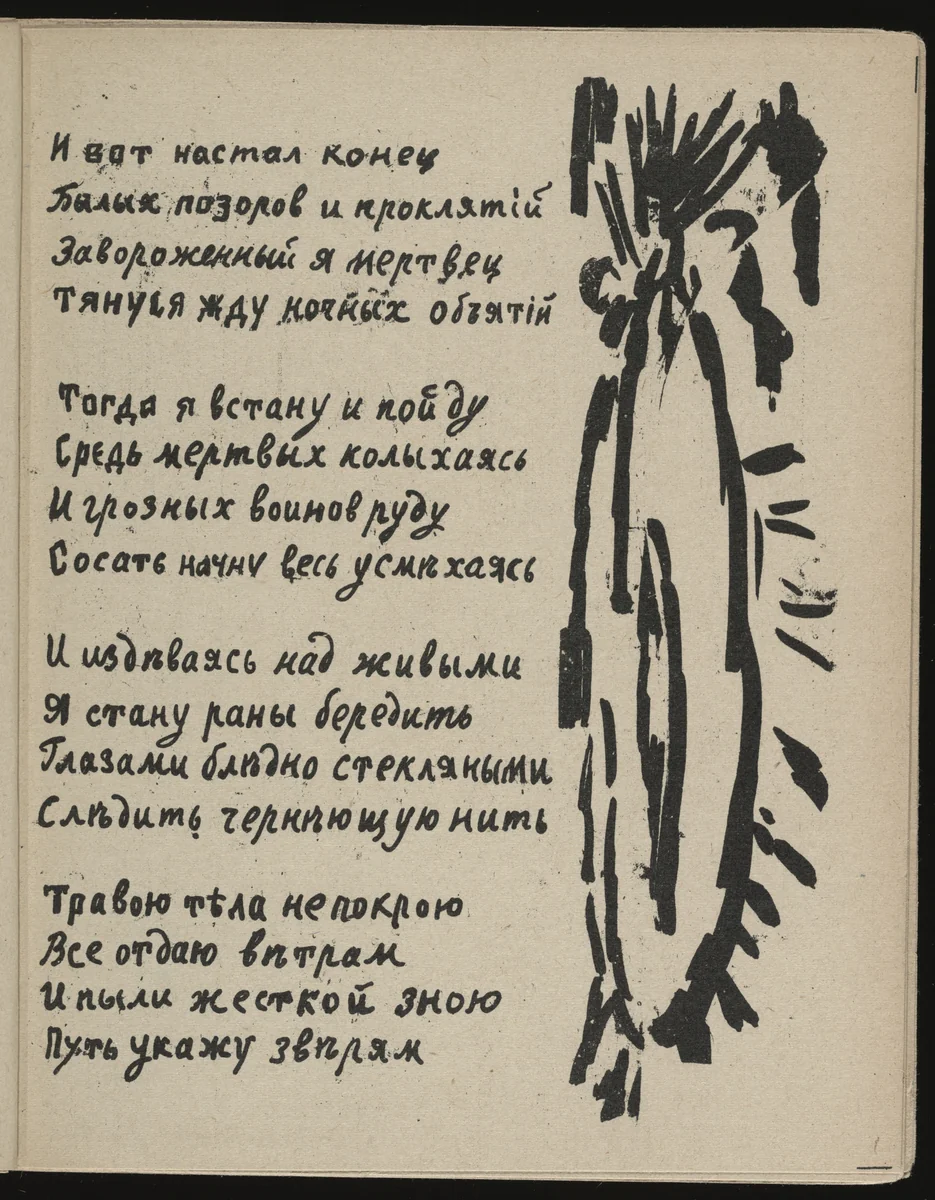 И вот настал конец
Балых позоров и проклятій
Завороженный я мертвец
Тянуся жду ночных объятій
Тогда я встану и пойду
Средь мертвых колыхаясь
И грозных воинов руду
Сосать начну весь усмѣхаясь
И издѣваясь над живыми
Я стану раны бередить
Глазами блѣдно стекляными
Слѣдить чернѣющую нить
Травою тѣла не покрою
Все отдаю вѣтрам
И пыли жесткой зною
Путь укажу звѣрям